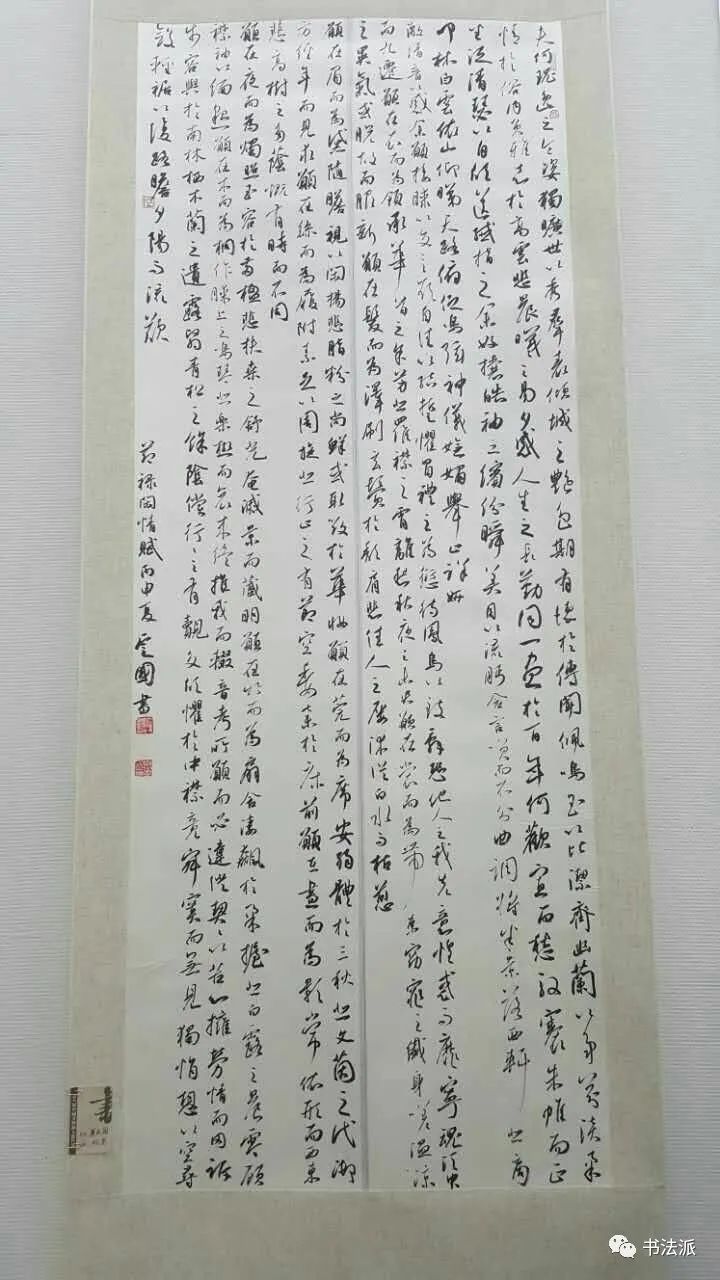 夫何瑰逸之令姿獨曠世以秀群表傾城之艷色期有德於傳聞佩鳴玉以比潔齊幽蘭以爭芬淡柔
情於俗內負雅志於高雲悲晨曦之易夕感人生之長勤同一盡於百年何歡寡而愁殷褰朱帷而正
坐泛清瑟以自欣送纖指之余好攘皓袖之繽紛瞬美目以流眄含言笑而不分曲調將半景落西軒悲商
叩林白雲依山仰睇天路俯促鳴弦神儀嫵媚舉止詳妍
激清音以感余願接膝以交言欲自往以結誓懼冒禮之為愆待鳳鳥以致辭恐他人之我先意惶惑而靡寧魂須臾
而九遷願在衣而為領承華首之余芳悲羅襟之宵離怨秋夜之未央願在裳而為帶束窈窕之纖身嗟溫涼
之異氣或脫故而服新願在髮而為澤刷玄鬢於頹肩悲佳人之屢沐從白水而枯煎
願在眉而為黛隨瞻視以閑揚悲脂粉之尚鮮或取毀於華妝願在莞而為席安弱體於三秋悲文茵之代御
方經年而見求願在絲而為履附素足以周旋悲行止之有節空委棄於床前願在晝而為影常依形而西東
悲高樹之多蔭慨有時而不同
願在夜而為燭照玉容於兩楹悲扶桑之舒光奄滅景而藏明願在竹而為扇含淒飆於柔握悲白露之晨零顧
襟袖以緬邈願在木而為桐作膝上之鳴琴悲樂極而哀來終推我而輟音考所願而必違徒契契以苦心擁勞情而罔訴
步容與於南林栖木蘭之遺露翳青松之餘陰儻行行之有覿交欣懼於中襟竟寂寞而無見獨悁想以空尋
斂輕裾以復路瞻夕陽而流歎
節錄閑情賦丙申夏雲國書
書
书法派